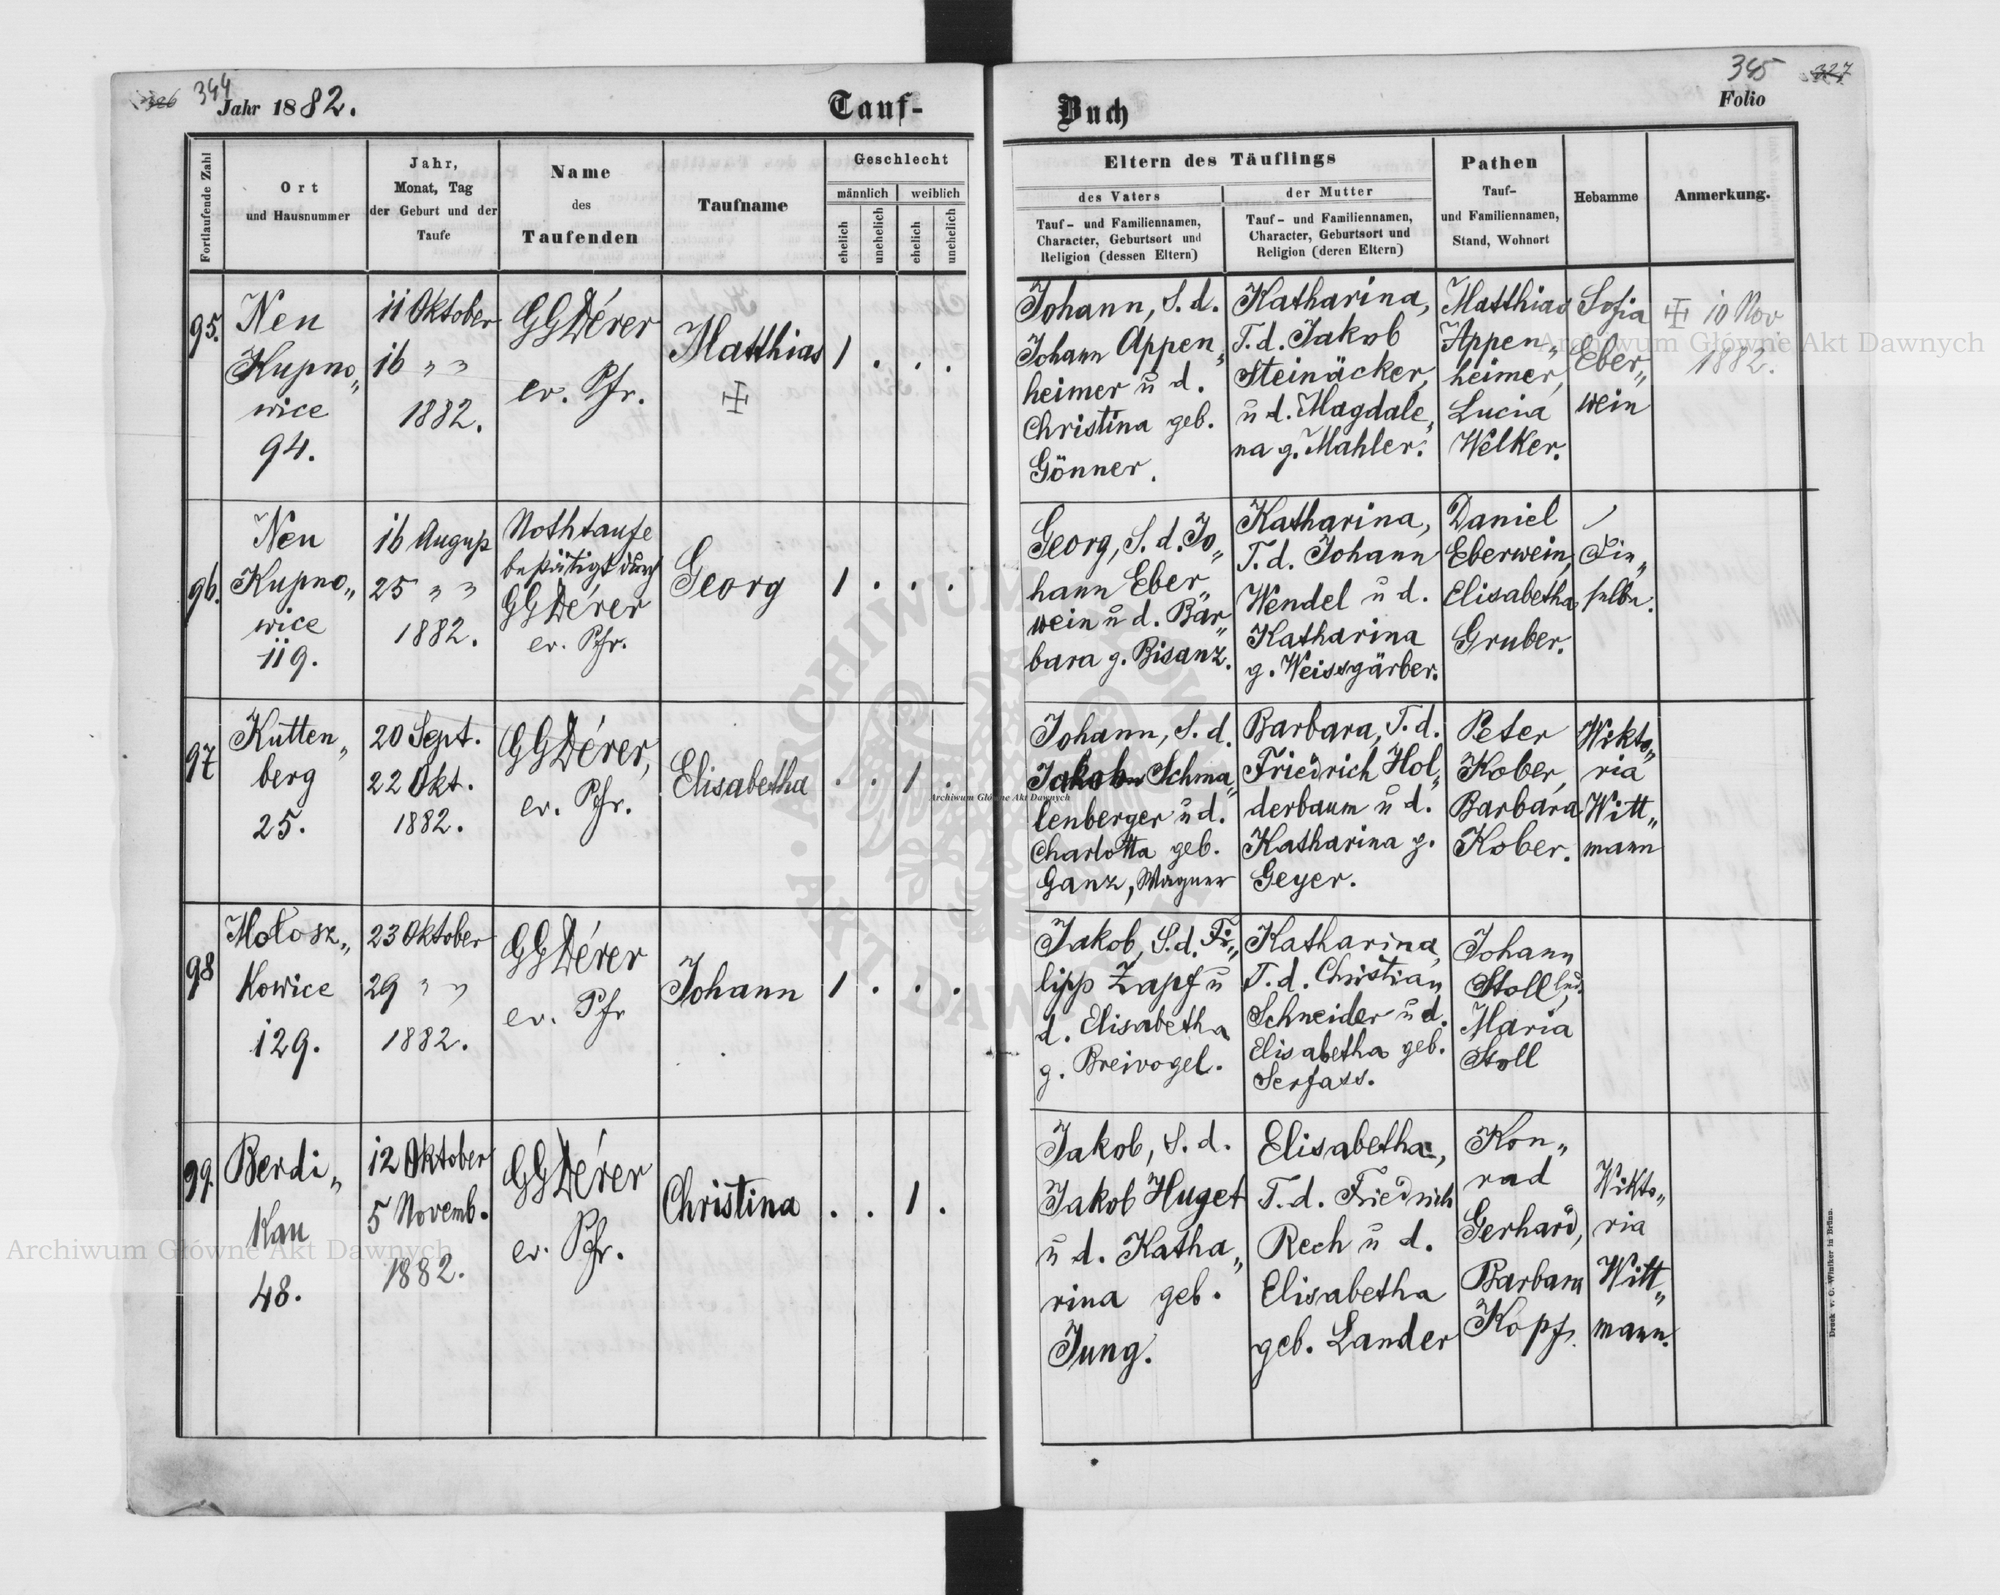 344
326
Jahr 1882.
Tauf-
Buch
345
327
Folio
Fortlaufende Zahl
Ort
und Hausnummer
Jahr,
Monat, Tag
der Geburt und der
Taufe
Name
des
Taufenden
Taufname
Geschlecht
männlich
weiblich
ehelich
unehelich
ehelich
unehelich
Eltern des Täuflings
des Vaters
der Mutter
Tauf- und Familiennamen,
Character, Geburtsort und
Religion (dessen Eltern)
Tauf- und Familiennamen,
Character, Geburtsort und
Religion (deren Eltern)
Pathen
Tauf-
und Familiennamen,
Stand, Wohnort
Hebamme
Anmerkung.
95.
Neu
Kupno„
wice
94.
11 Oktober
16 „ „
1882.
GGDérer
ev. Pfr.
Matthias
1 . . .
Johann, S. d.
Johann Appen„
heimer u d.
Christina geb.
Gönner.
Katharina,
T. d. Jakob
Steinäcker,
u d. Magdale„
na g. Mahler.
Matthias
Appen„
heimer,
Lucia
Welker.
Sofia
Eber„
wein
10 Nov
1882.
96.
Neu
Kupno„
wice
119.
16 August
25 „ „
1882.
Nothtaufe
bestätigt durch
GGDérer
ev. Pfr.
Georg
1 . . .
Georg, S. d. Jo„
hann Eber„
wein u d. Bar„
bara g. Bisanz.
Katharina,
T. d. Johann
Wendel u d.
Katharina
g. Weissgärber.
Daniel
Eberwein,
Elisabetha
Gruber.
97
Kutten„
berg
25.
20 Sept.
22 Okt.
1882.
GGDérer,
ev. Pfr.
Elisabetha
. . 1 .
Johann, S. d.
Jakob Schma„
lenberger u d.
Charlotta geb.
Ganz, Wagner
Barbara, T. d.
Friedrich Hol„
derbaum u d.
Katharina g.
Geyer.
Peter
Kober,
Barbara
Kober.
Wikto„
ria
Witt„
mann
98
Mołosz„
kowice
129.
23 Oktober
29 „ „
1882.
GGDérer
ev. Pfr
Johann
1 . . .
Jakob, S. d. Fi„
lipp Zapf u
d. Elisabetha
g. Breivogel.
Katharina,
T. d. Christian
Schneider u d.
Elisabetha geb.
Serfass.
Johann
Stoll
Maria
Stoll
99.
Berdi„
kau
48.
12 Oktober
5 Novemb.
1882.
GGDérer
ev. Pfr.
Christina
. . 1 .
Jakob, S. d.
Jakob Huget
u d. Katha„
rina geb.
Jung.
Elisabetha,
T. d. Friedrich
Rech u d.
Elisabetha
geb. Lander
Kon„
rad
Gerhard,
Barbara
Kopf.
Wikto„
ria
Witt„
mann.
Druck v. C. Winiker in Brünn.
Archiwum Główne Akt Dawnych
Archiwum Główne Akt Dawnych
Archiwum Główne Akt Dawnych